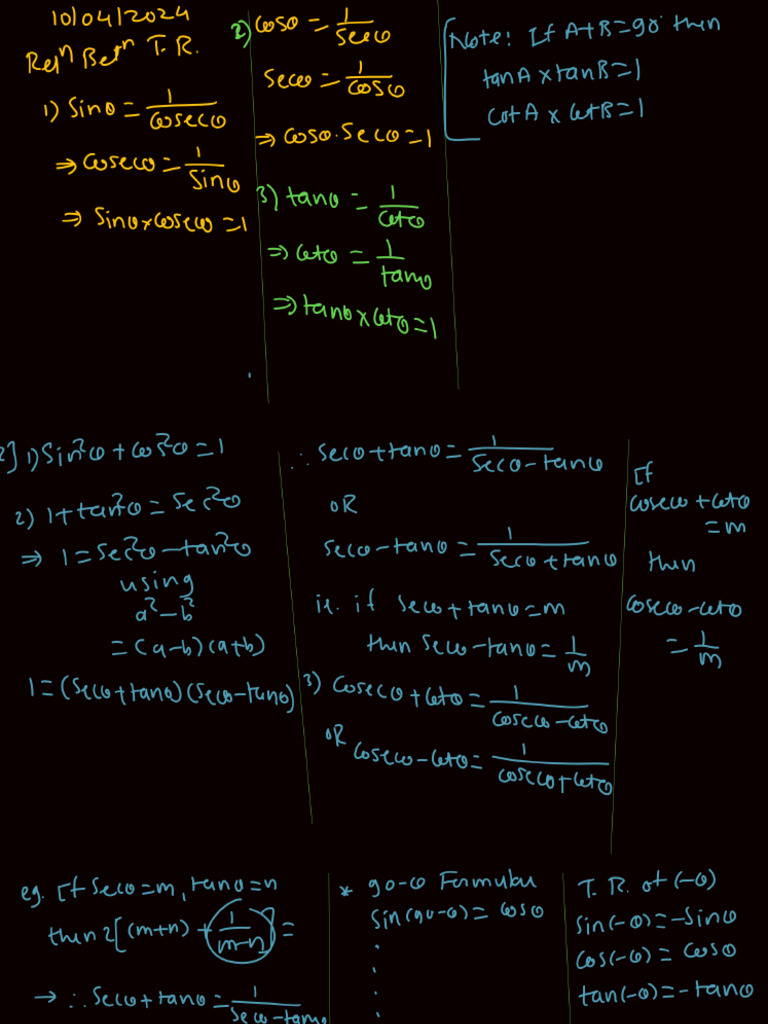 10/04/2024
Relⁿ Betⁿ T.R.
1) sinθ = 1/cosecθ
⇒ cosecθ = 1/sinθ
⇒ sinθ×cosecθ = 1
2) cosθ = 1/secθ
secθ = 1/cosθ
⇒ cosθ·secθ = 1
3) tanθ = 1/cotθ
⇒ cotθ = 1/tanθ
⇒ tanθ × cotθ = 1
Note: If A+B=90° then
tanA × tanB = 1
cotA × cotB = 1
2] 1) sin²θ + cos²θ = 1
2) 1+tan²θ = sec²θ
⇒ 1 = sec²θ - tan²θ
using
a²-b²
= (a-b)(a+b)
1 = (secθ+tanθ)(secθ-tanθ)
∴ secθ+tanθ = 1/secθ-tanθ
OR
secθ-tanθ = 1/secθ+tanθ
ie. if secθ+tanθ=m
then secθ-tanθ = 1/m
3) cosecθ+cotθ = 1/cosecθ-cotθ
OR
cosecθ-cotθ = 1/cosecθ+cotθ
If
cosecθ+cotθ
= m
then
cosecθ-cotθ
= 1/m
eg. If secθ=m, tanθ=n
then 2[(m+n) + 1/m-n] =
→ ∴ secθ+tanθ = 1/secθ-tanθ
* 90-θ Formulae
sin(90-θ) = cosθ
T.R. of (-θ)
sin(-θ) = -sinθ
cos(-θ) = cosθ
tan(-θ) = -tanθ